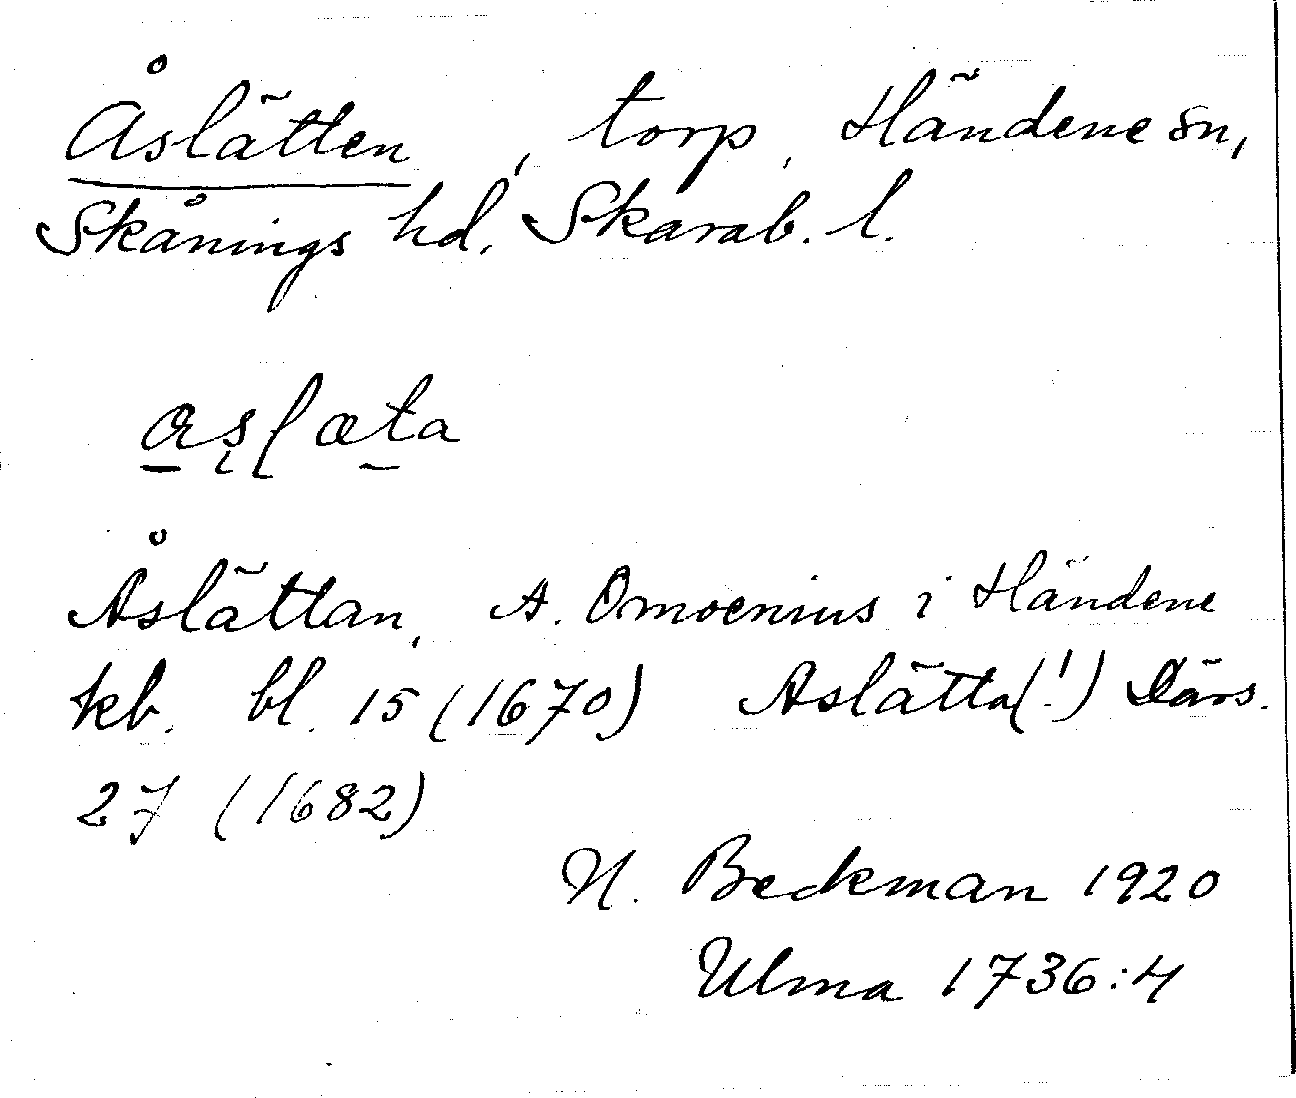 Åslätten, torp, Händene sn,
Skånings hd, Skarab. l.
aslæta
Åslättan, A. Omoenius i Händene
kb. bl. 15 (1670) Aslätta(!) Därs.
27 (1682)
N. Beckman 1920
Ulma 1736:4